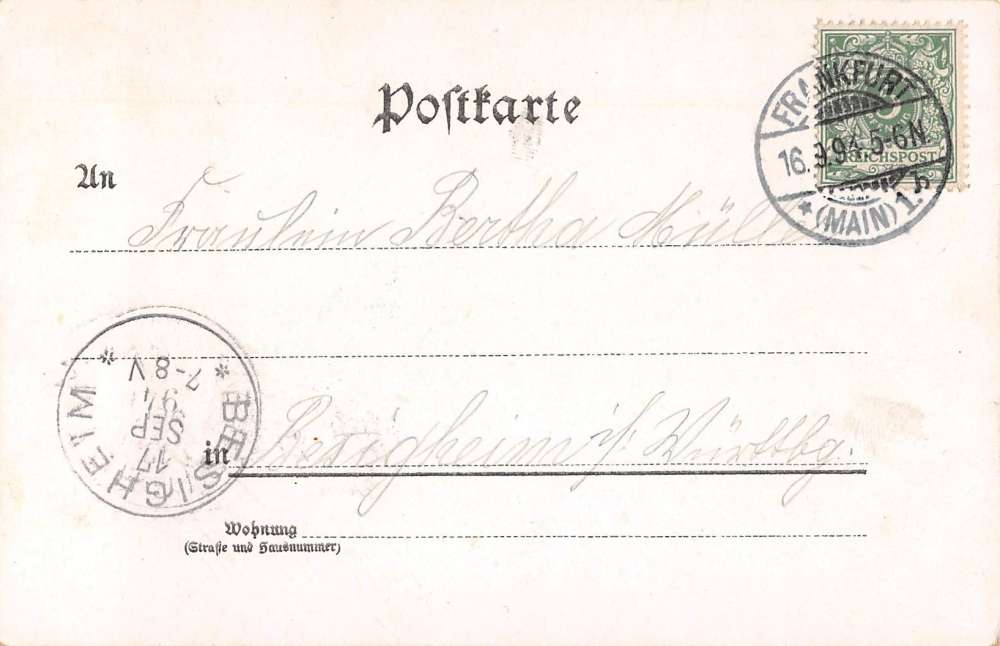 Postkarte
FRANKFURT
5
16.9.94.5-6N.
REICHSPOST
* (MAIN) 1. b
An
Fraulein Bertha Müller
* BESIGHEIM *
17
SEP
94
7-8V
in Besigheim i/ Württbg.
Wohnung
(Straße und Hausnummer)